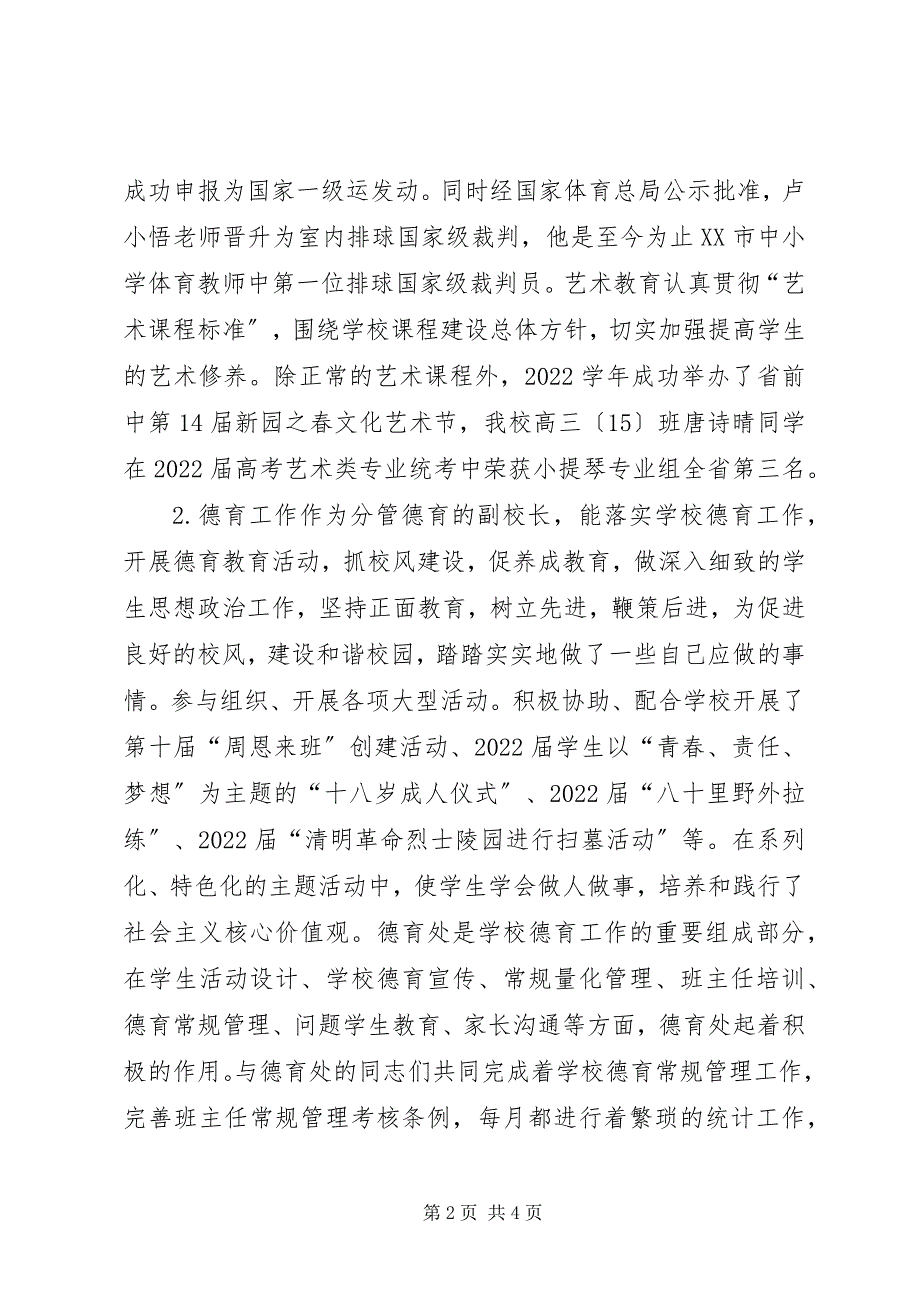 成功申报为国家一级运发动。同时经国家体育总局公示批准，卢
小悟老师晋升为室内排球国家级裁判，他是至今为止 XX 市中小
学体育教师中第一位排球国家级裁判员。艺术教育认真贯彻“艺
术课程标准〞，围绕学校课程建设总体方针，切实加强提高学生
的艺术修养。除正常的艺术课程外，2022 学年成功举办了省前
中第 14 届新园之春文化艺术节，我校高三〔15〕班唐诗晴同学
在 2022 届高考艺术类专业统考中荣获小提琴专业组全省第三名。
2. 德育工作作为分管德育的副校长，能落实学校德育工作，
开展德育教育活动，抓校风建设，促养成教育，做深入细致的学
生思想政治工作，坚持正面教育，树立先进，鞭策后进，为促进
良好的校风，建设和谐校园，踏踏实实地做了一些自己应做的事
情。参与组织、开展各项大型活动。积极协助、配合学校开展了
第十届“周恩来班〞创建活动、2022 届学生以“青春、责任、
梦想〞为主题的“十八岁成人仪式〞、2022 届“八十里野外拉
练〞、2022 届“清明革命烈士陵园进行扫墓活动〞等。在系列
化、特色化的主题活动中，使学生学会做人做事，培养和践行了
社会主义核心价值观。德育处是学校德育工作的重要组成部分，
在学生活动设计、学校德育宣传、常规量化管理、班主任培训、
德育常规管理、问题学生教育、家长沟通等方面，德育处起着积
极的作用。与德育处的同志们共同完成着学校德育常规管理工作，
完善班主任常规管理考核条例，每月都进行着繁琐的统计工作，
第 2 页 共 4 页